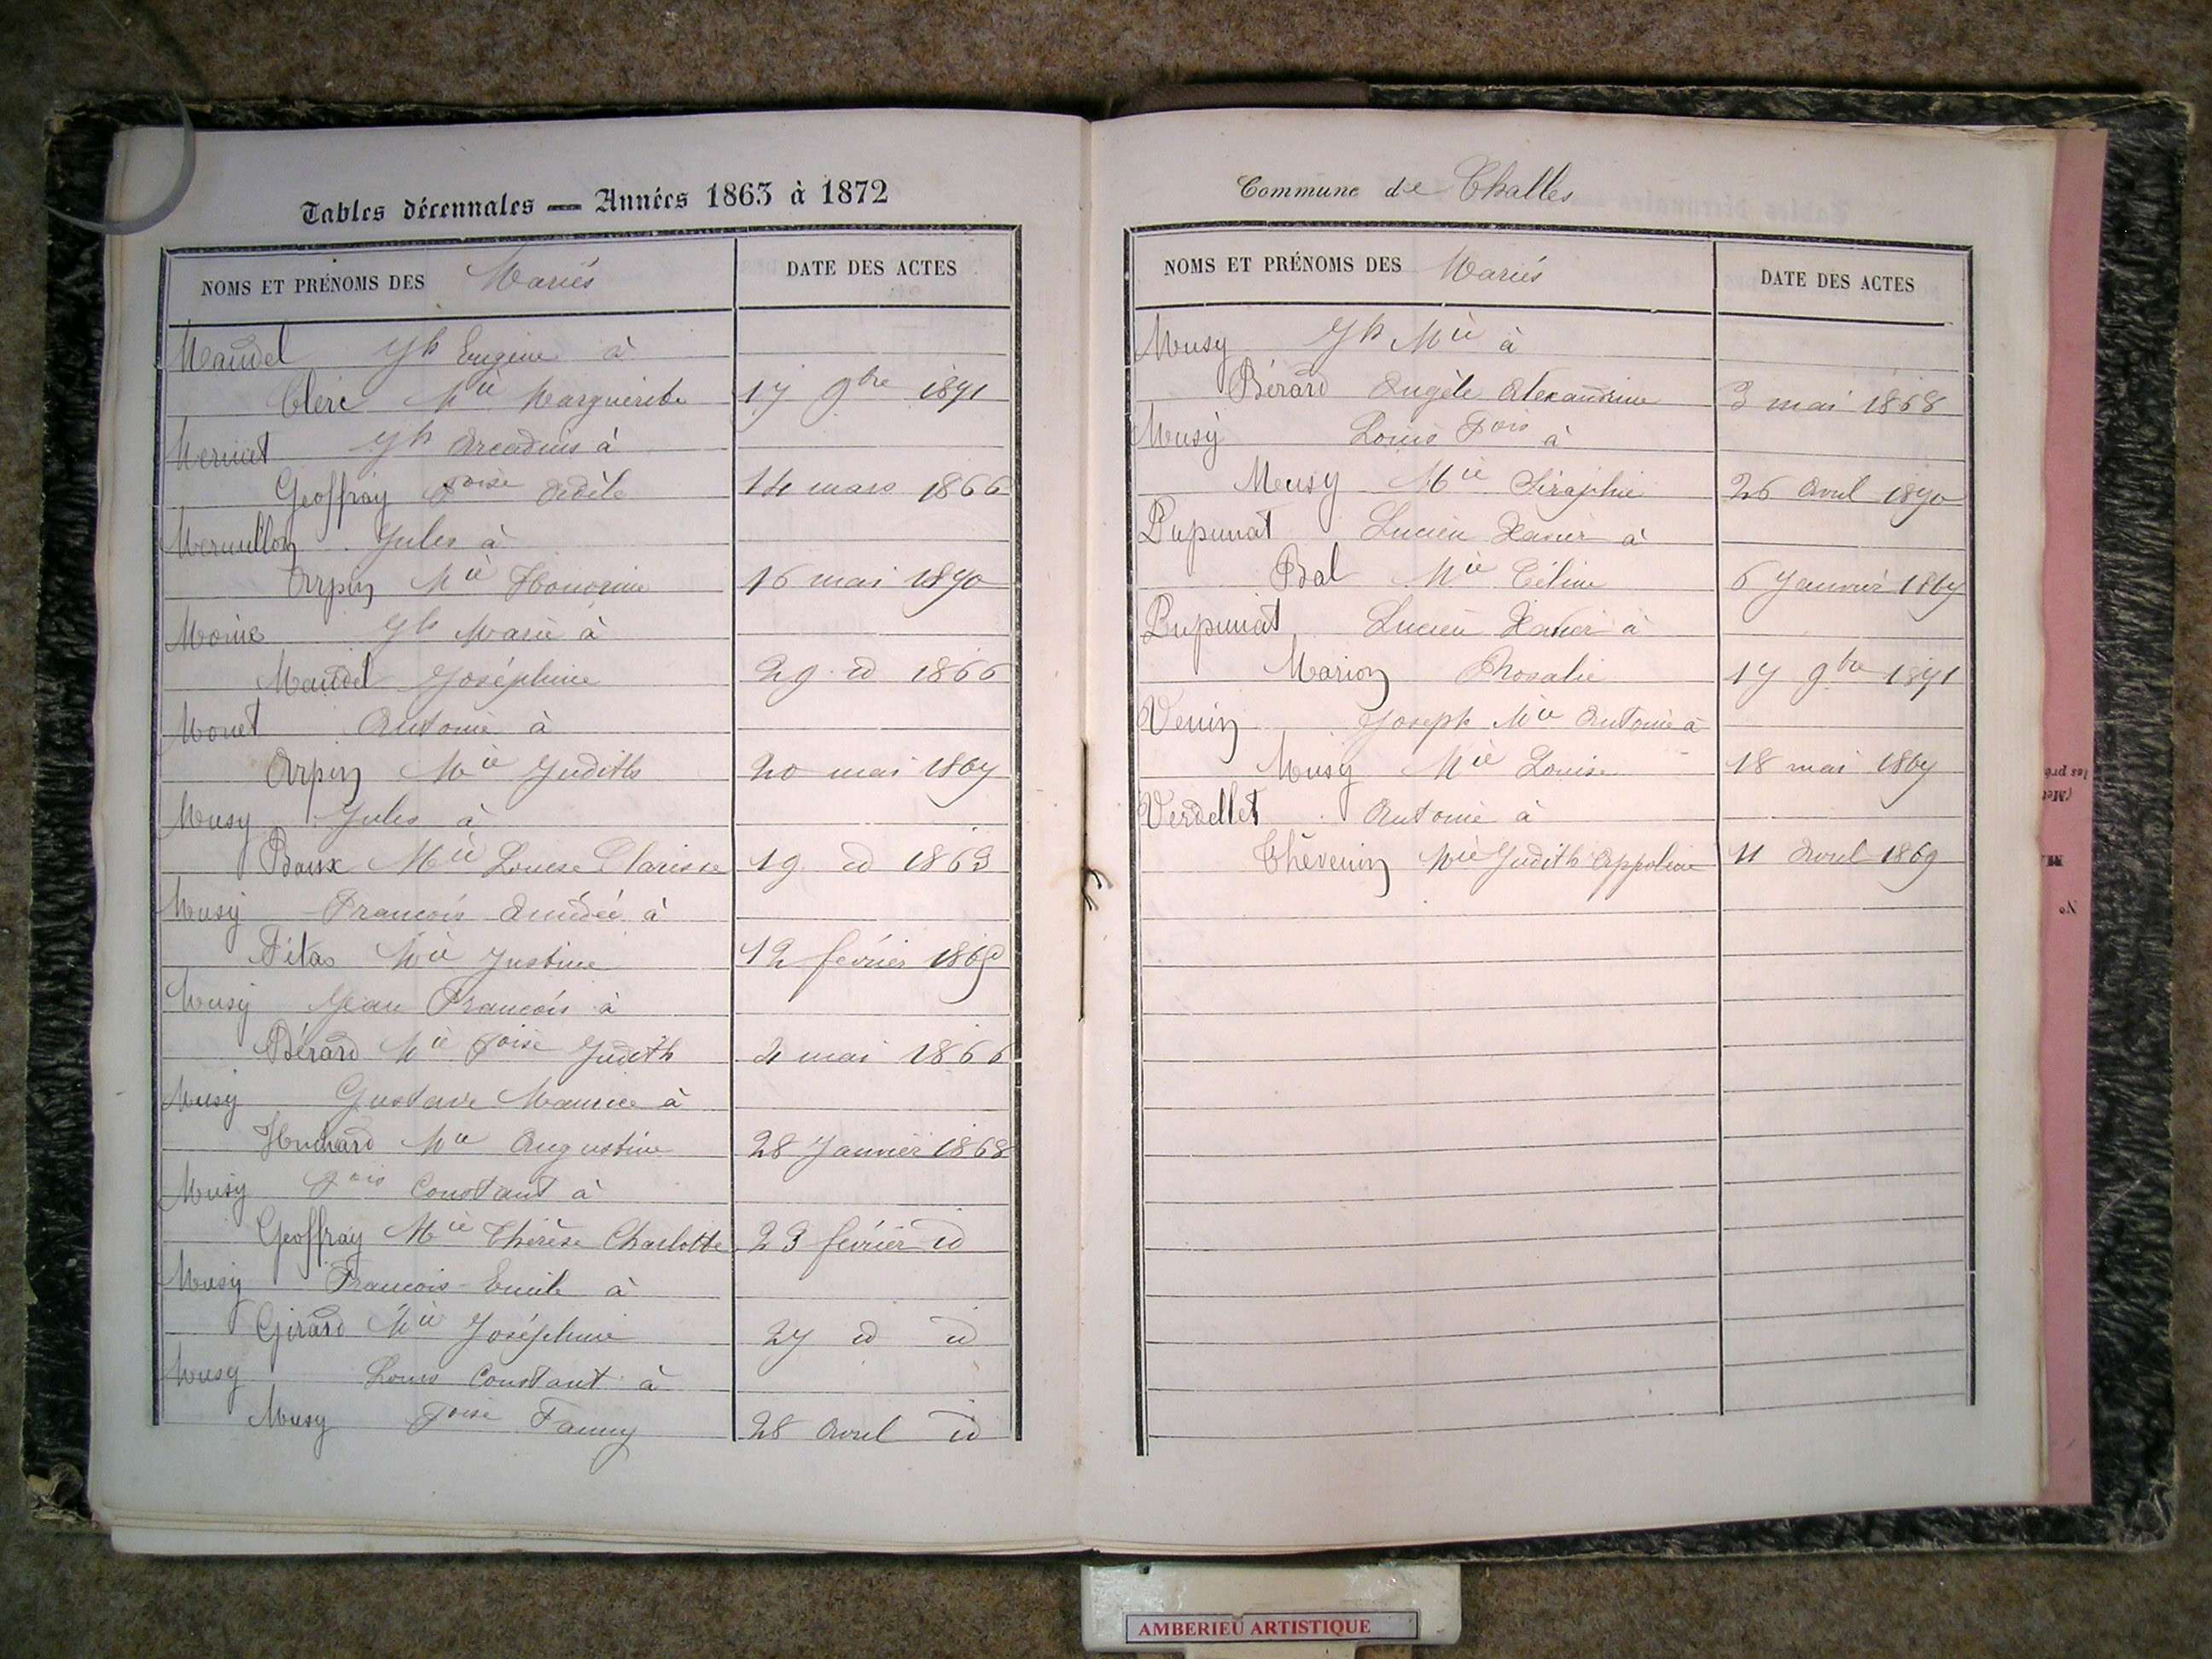 Tables décennales — Années 1863 à 1872
NOMS ET PRÉNOMS DES Mariés DATE DES ACTES
Mandel Jh Eugène à
Clerc Mie Marguerite 17 9bre 1871
Mermet Jh Arcadius à
Geoffray Foise Adèle 14 mars 1866
Mermillon Jules à
Arpin Mie Honorine 16 mai 1870
Jh Marie à
Mandel Joséphine 29 id 1866
Monet Antoine à
Arpin Mie Judith 20 mai 1867
Musy Jules à
Mie Louise Clarisse 19 id 1863
Musy François Amédée à
Mie Justine 12 février
Musy Jean François à
Bérard Mie Foise Judith 4 mai 1866
Musy Gustave Maurice à
Huchard Mie Augustine 28 Janvier 1868
Musy Fois Constant à
Geoffray Mie Thérèse Charlotte 23 février id
Musy François-Emile à
Girard Mie Joséphine 27 id id
Musy Louis Constant à
Musy Foise Fanny 28 Avril id
Commune de Challes
NOMS ET PRÉNOMS DES Mariés DATE DES ACTES
Musy Jh Mie à
Bérard Angèle Alexandrine 3 mai 1868
Musy Louis Fois à
Musy Mie Séraphie 26 Avril 1870
Pupunat Lucien Xavier à
Bal Mie Céline 6 Janvier 1867
Pupunat Lucien Xavier à
Marion Rosalie 17 9bre 1871
Venin Joseph Mie Antoine à
Musy Mie Louise 18 mai 1867
Verdellet Antoine à
Thévenin Mie Judith Appoline 11 Avril 1869
AMBERIEU ARTISTIQUE